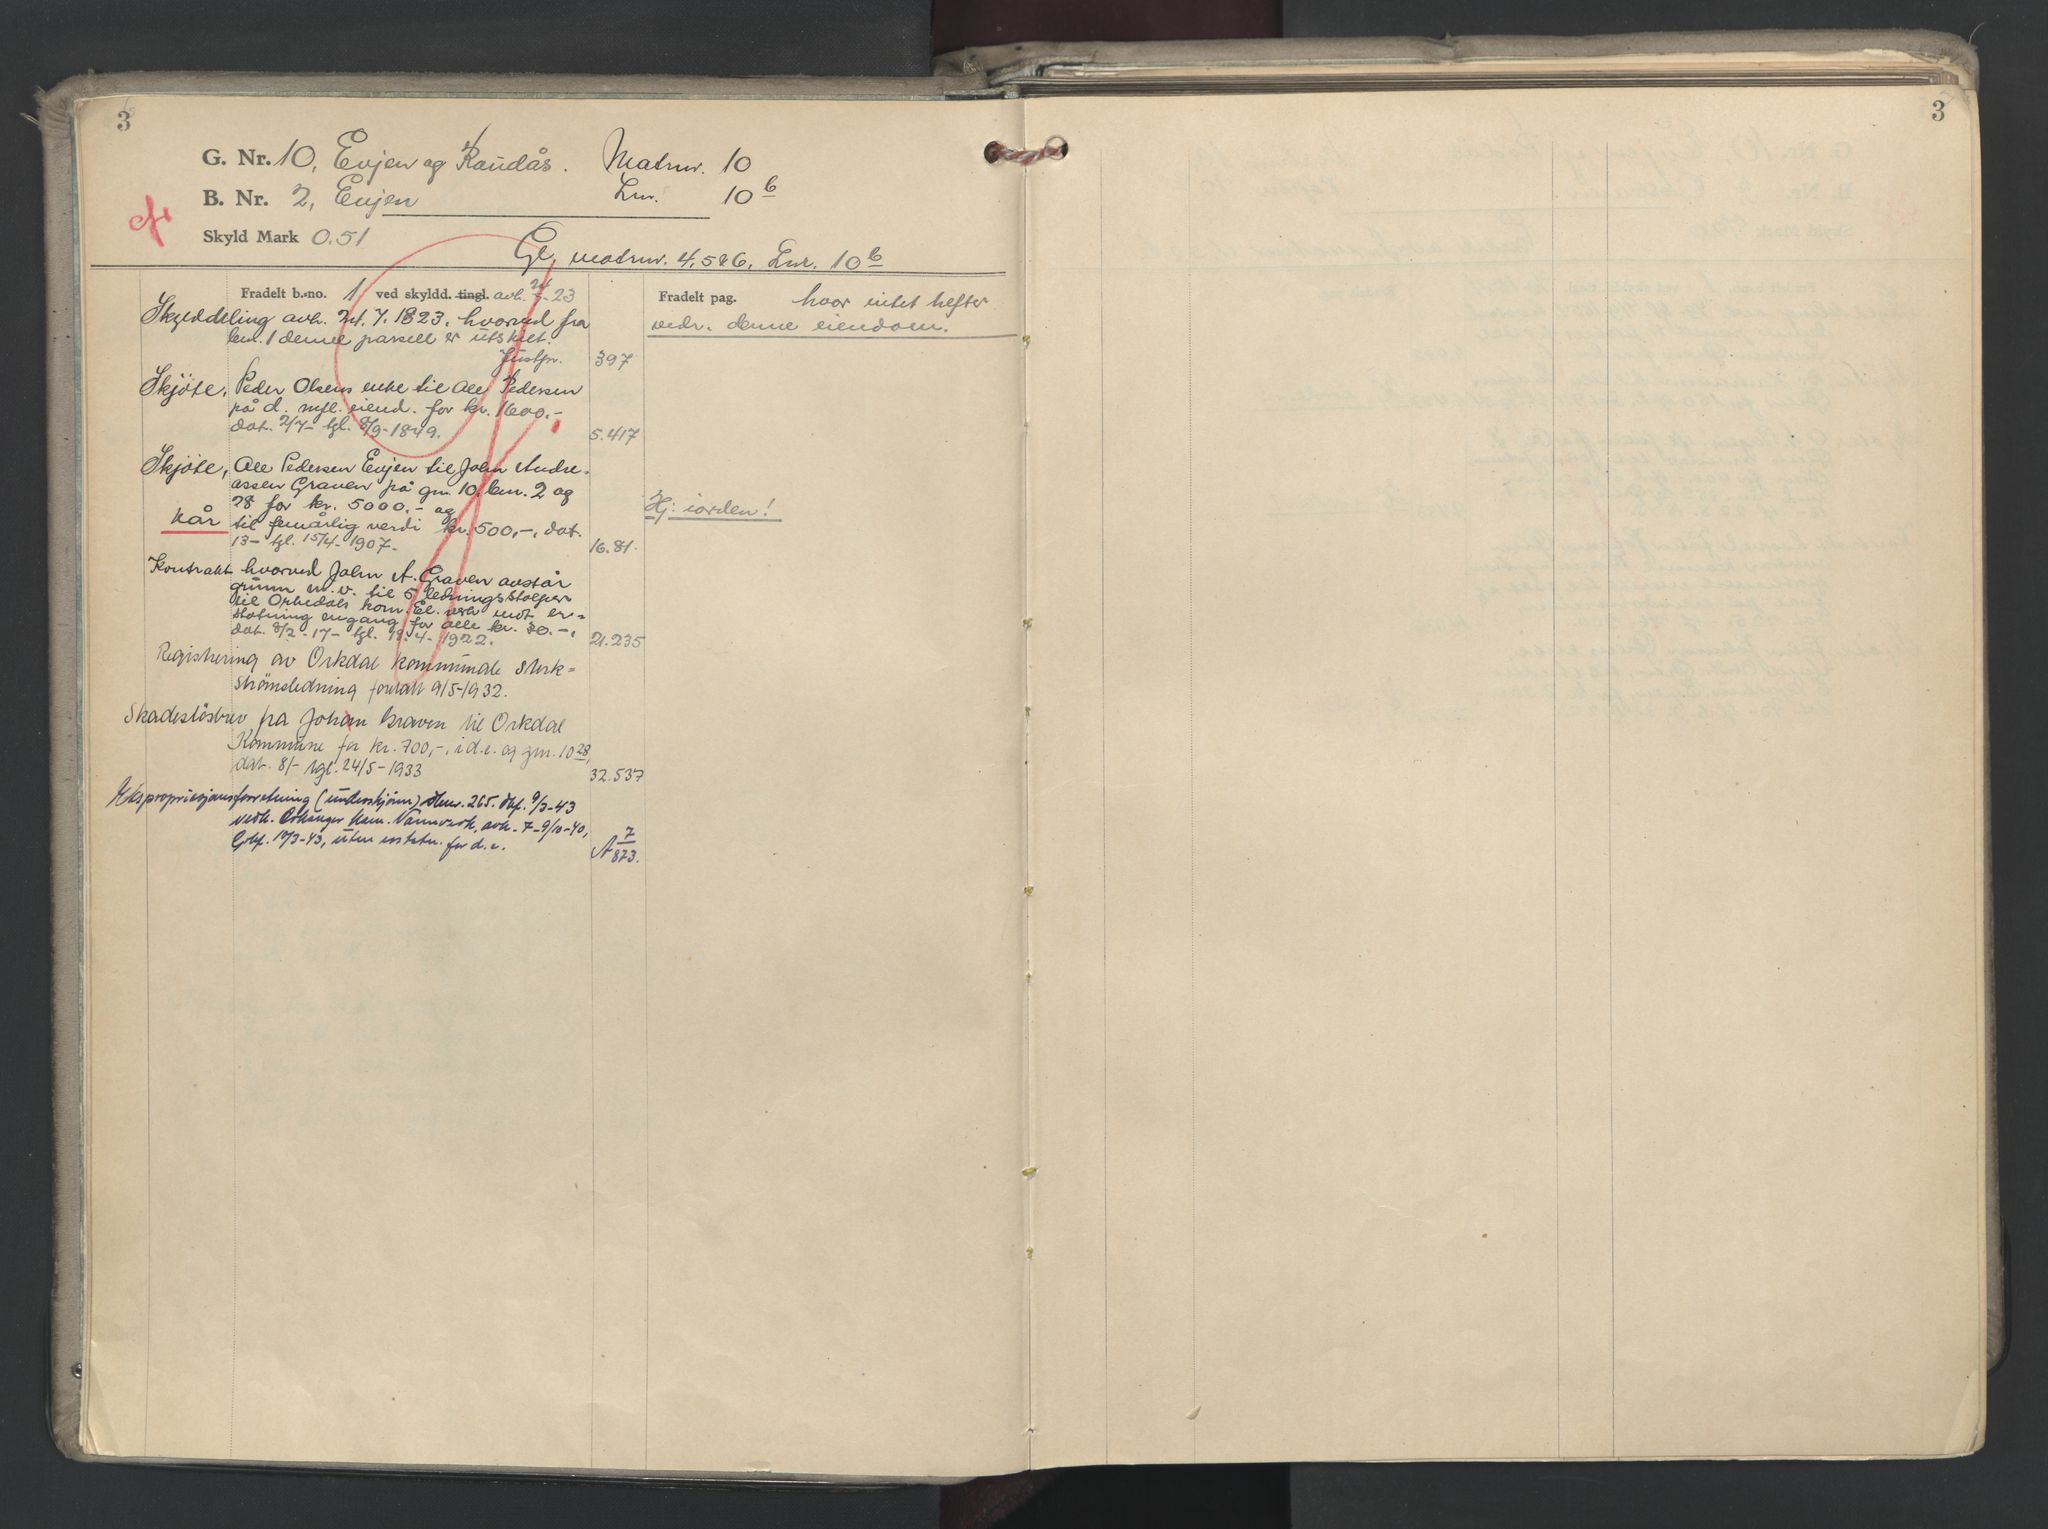 3
G. Nr. 10, Evjen og Raudås. Matrnr. 10
B. Nr. 2, Evjen Lnr. 10b
Skyld Mark 0.51
Gl. matrnr. 4, 5 & 6, Lnr. 10b
Fradelt b.-no. 1 ved skyldd. tingl. avh. 24/7-23
Skylddeling avh. 24. 7. 1823, hvorved fra
bnr. 1 denne parsell er utskilt.
Justpr. 397
Skjöte, Peder Olsens enke til Ole Pedersen
på d. mfl. eiend. for kr. 1600,-
dat. 2/7- tgl. 8/9-1849. 5.417
Skjöte, Ole Pedersen Evjen til John Andre-
assen Graven på gnr. 10, bnr. 2 og
28 for kr. 5000,- og
kår til femårlig verdi kr. 500,-, dat.
13- tgl. 15/4-1907. 16.81.
Kontrakt hvorved John A. Graven avstår
grunn m.v. til 5 ledningsstolper
til Orkedals kom. El. verk mot er-
statning engang for alle kr. 30.-,
dat. 8/2-17- tgl. 18.4-1922. 21.235
Registrering av Orkdal kommunale sterk-
strömsledning foretatt 9/5-1932.
Skadeslösbrev fra Johan Graven til Orkdal
Kommune for kr. 700,-, i d.e. og gnr. 10 28,
dat. 8/- tgl. 24/5-1933 32.537
Ekspropriasjonsforretning (underskjönn) dbnr. 265. dkf. 9/3-43
vedk. Orkanger kom. Vannverk, avh. 7-9/10-40,
Gbkf. 10/3-43, uten erstatn. for d.e. A 7/873.
Fradelt pag. hvor intet hefter
vedr. denne eiendom.
Hj: iorden!
3